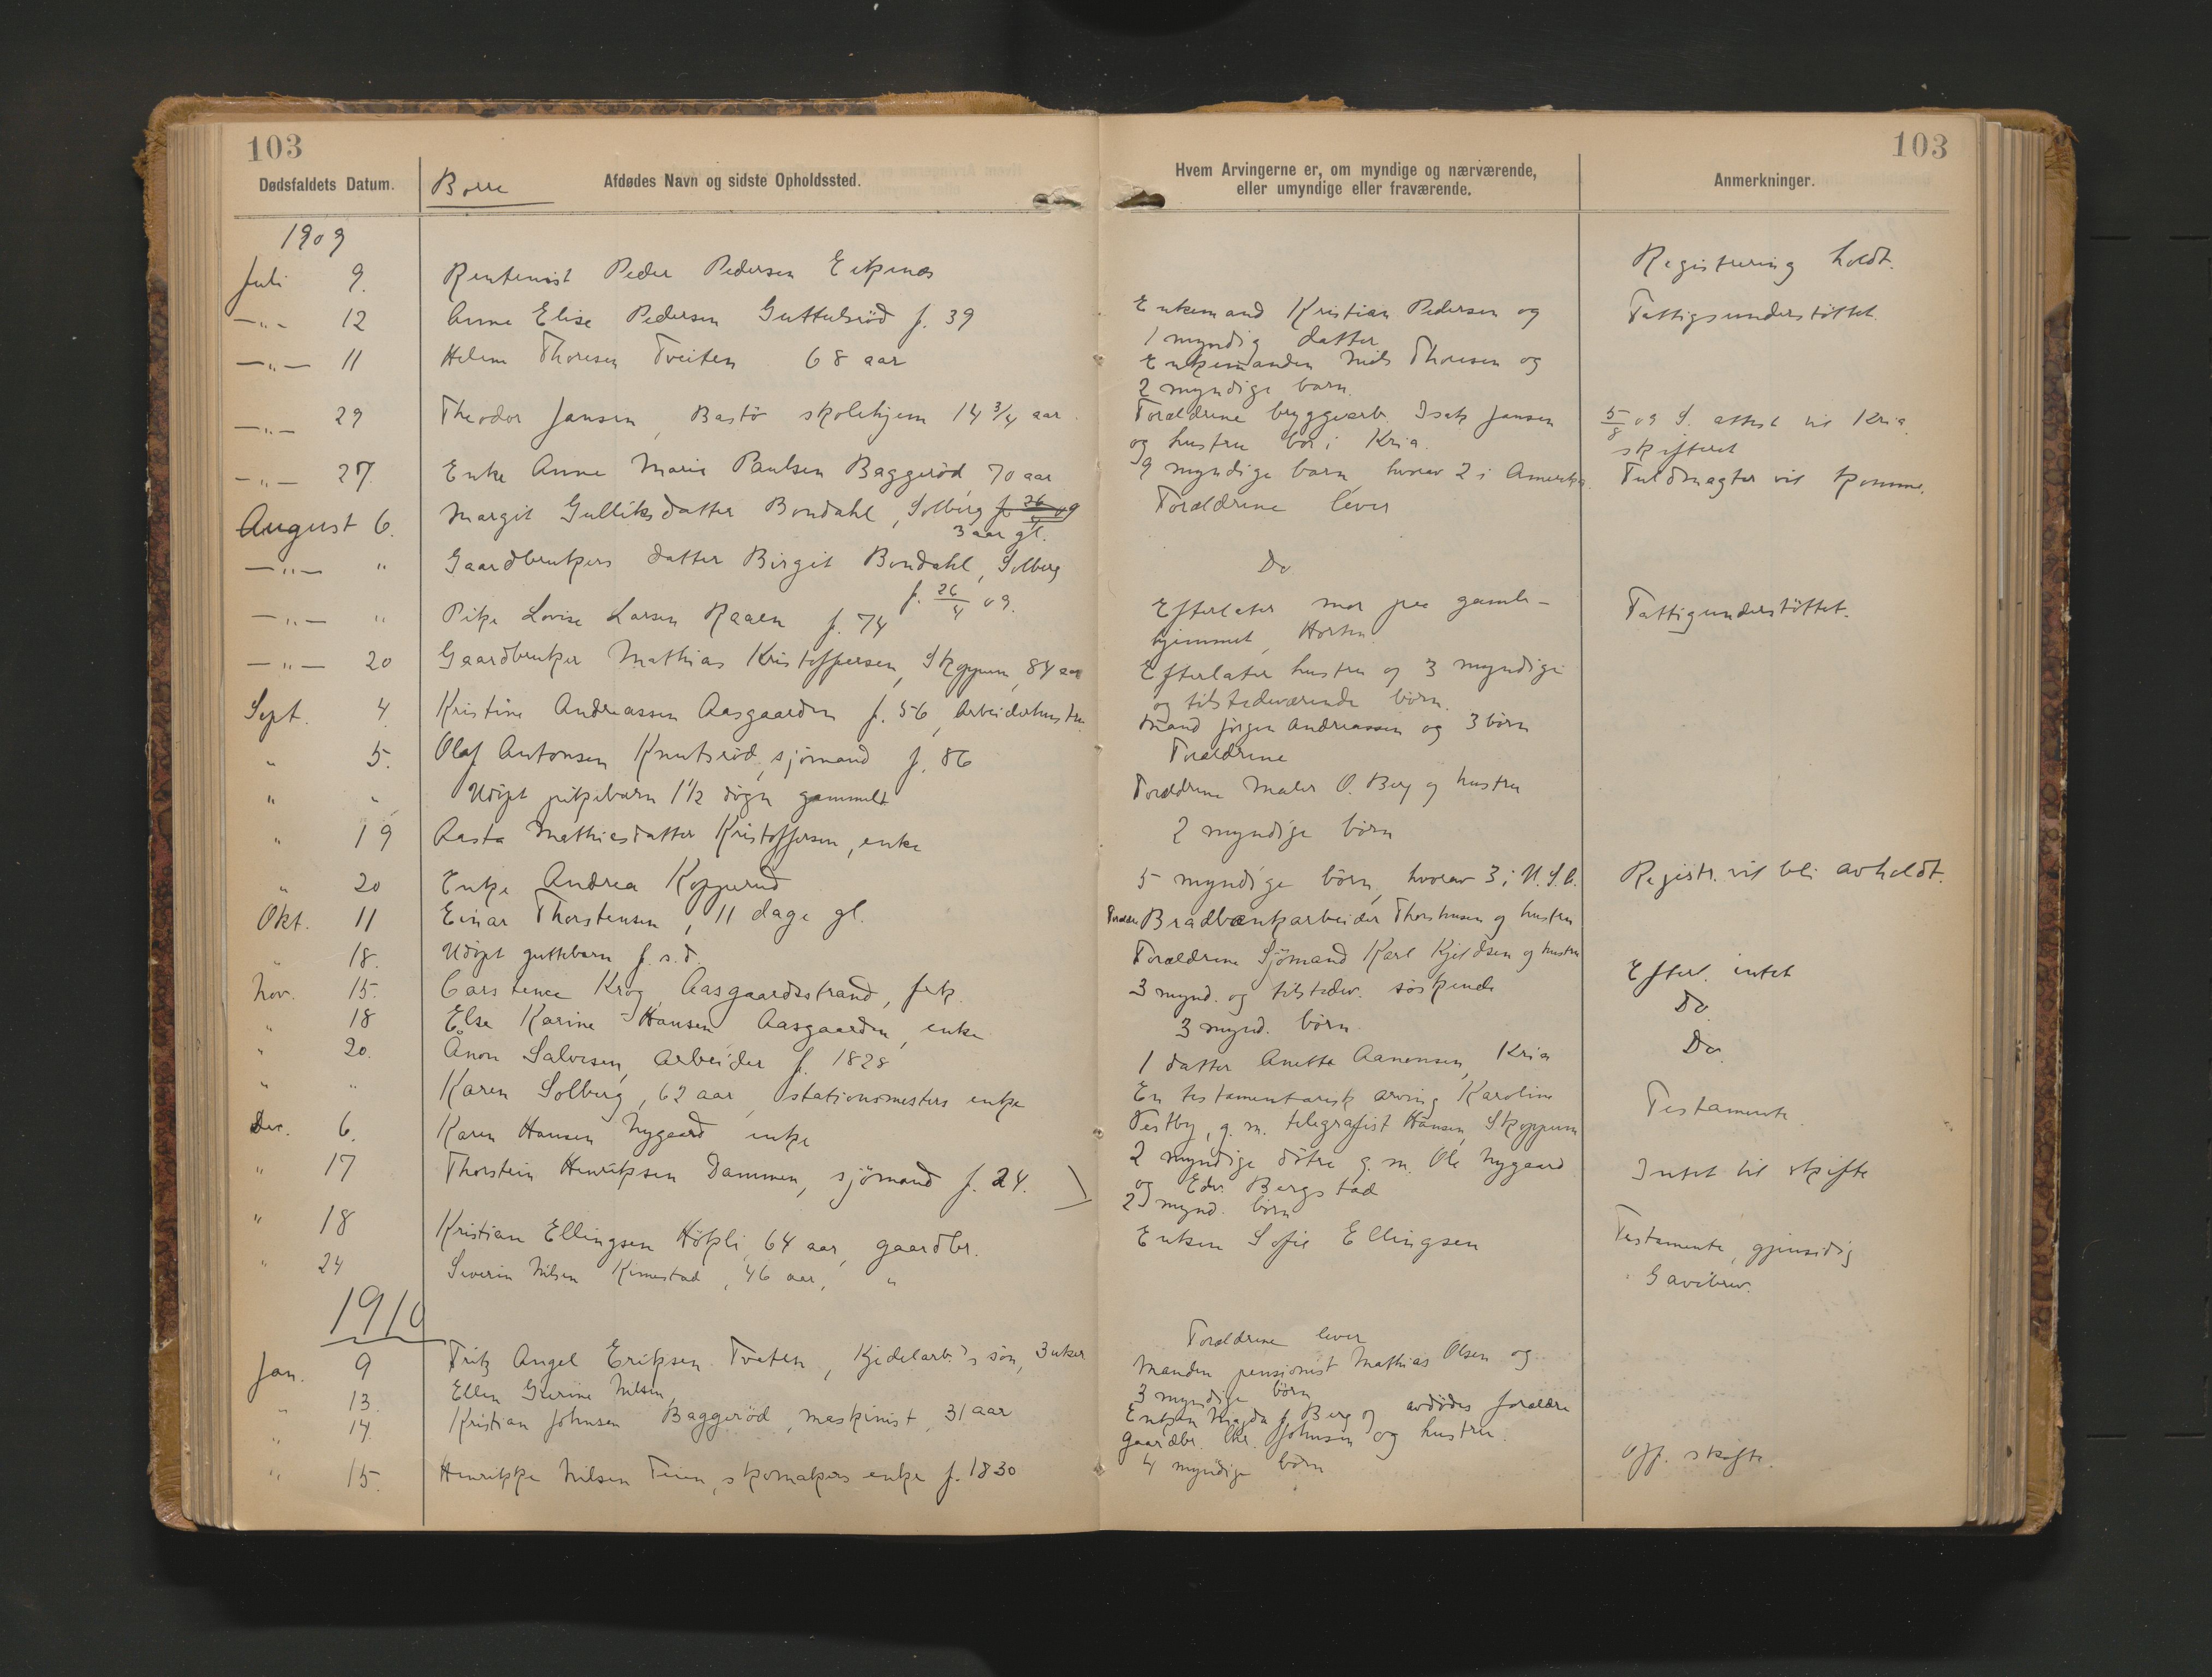 103
Dødsfaldets Datum.
Borre
Afdødes Navn og sidste Opholdssted.
1909
Juli 9. Rentenist Peder Pedersen Eikenes
—"— 12 Anne Elise Pedersen Guttulsrød f. 39
—"— 11 Helene Thoresen Tveiten 68 aar
—"— 29 Theodor Jansen, Bastö skolehjem 14 3/4 aar.
—"— 27. Enke Anne Marie Paulsen Baggeröd, 70 aar
August 6. Margit Gulliksdatter Bondahl, Solberg f. 26/4 09
3 aar gl.
—"— " Gaardbrukers datter Birgit Bondahl, Solberg
f. 26/4 09.
—"— " Pike Lovise Larsen Raaen f. 74
—"— 20 Gaardbruker Mathias Kristoffersen, Skoppum, 84 aar
Sept. 4. Kristine Andreassen Aasgaarden f. 56, arbeiderhustru
" 5. Olaf Antonsen Knutsröd, sjömand f. 86
" " Udöpt pikebarn 1 1/2 dögn gammelt
" 19 Aasta Mathiesdatter Kristoffersen, enke
" 20 Enke Andrea Kopperud
Okt. 11 Einar Thorstensen, 11 dage gl.
" 18. Udöpt guttebarn f. s.d.
Nov. 15. Carstence Krog, Aasgaardsstrand, frk.
" 18 Else Karine Hansen Aasgaarden, enke
" 20. Ånon Salvesen, arbeider f. 1828
" " Karen Solberg, 62 aar, stationsmesters enke
Dec. 6. Karen Hansen Nygaard enke
" 17 Thorstein Henriksen Dammen, sjömand f. 24.
" 18 Kristian Ellingsen Hökli, 64 aar, gaardbr.
" 24 Severin Nilsen Kimestad, 46 aar, "
1910
Jan. 9 Fritz Angel Eriksen Tveten, Kjedelarb.'s sön, 3 uker
" 13. Ellen Gurine Nilsen,
" 14. Kristian Johnsen Baggeröd, maskinist, 31 aar
" 15. Henrikke Nilsen Teien, skomakers enke f. 1830
103
Hvem Arvingerne er, om myndige og nærværende,
eller umyndige eller fraværende.
Anmerkninger.
Registrering holdt.
Enkemand Kristian Pedersen og
Fattigsunderstöttet.
1 myndig datter
Enkemanden Niels Thoresen og
2 myndige barn.
Forældrene bryggearb. Isak Jansen
5/8 09 S. attest til Kria.
og hustru bor i Kria.
skifteret
9 myndige barn, hvorav 2 i Amerika.
Fuldmagter vil komme.
Forældrene lever
Do
Efterlater mor paa gamle-
Fattigunderstöttet.
hjemmet, Horten
Efterlater hustru og 3 myndige
og tilstedeværende börn.
Mand Jörgen Andreassen og 3 börn
Forældrene
Forældrene Maler O. Berg og hustru
2 myndige börn
5 myndige börn, hvorav 3 i U.S.A.
Registr. vil bli avholdt.
Forældre Brædbankarbeider Thorstensen og hustru
Forældrene Sjömand Karl Kjeldsen og hustru
3 mynd. og tilstedev. söskende
Efterl. intet
3 mynd. börn.
Do.
1 datter Anette Aanonsen, Kria
Do.
En testamentarisk arving Karoline
Testamente
Vestby, g. m. telegrafist Hansen, Skoppum
2 myndige dötre g. m. Ole Nygaard
Intet til skifte
og Edv. Bergstad
2 mynd. börn
Enken Sofie Ellingsen
Testamente, gjensidig
Gavebrev.
Forældrene lever
Manden pensionist Mathias Olsen og
3 myndige börn
Enken Magda f. Berg og avdödes forældre
gaardbr. Chr. Johnsen og hustru.
4 myndige börn
Off. skifte.